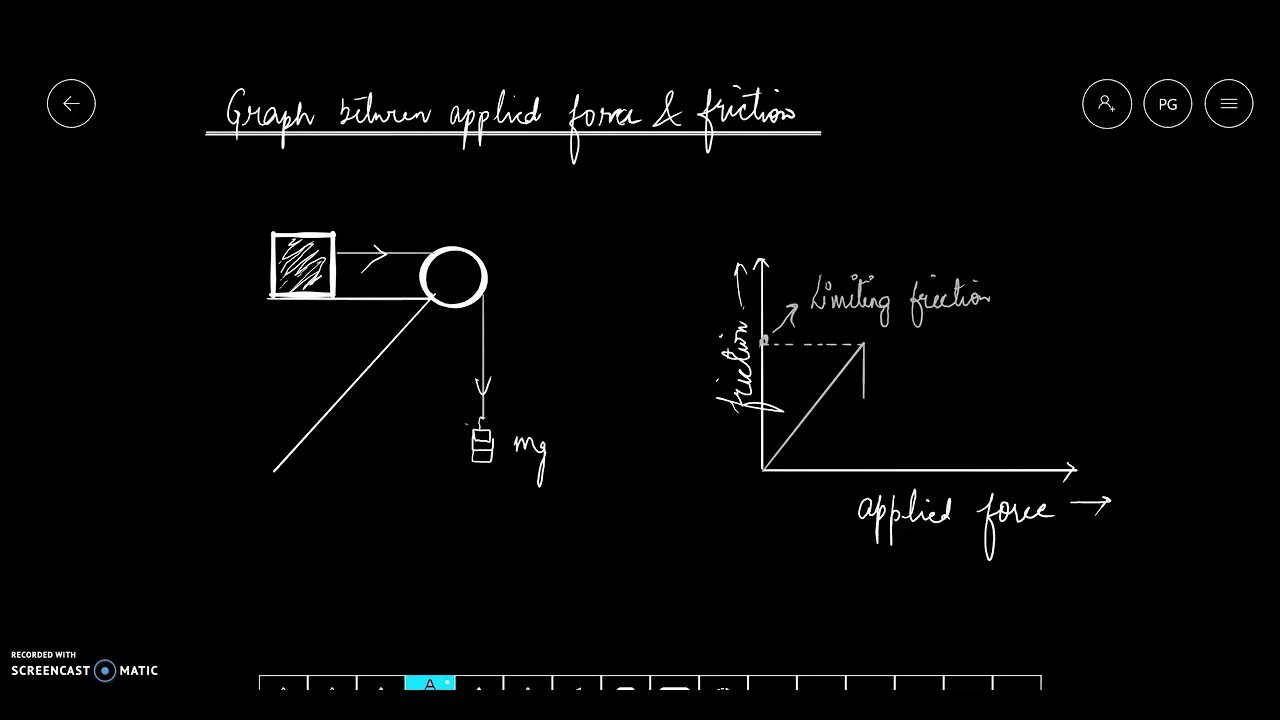 Graph between applied force & friction
PG
Limiting friction
friction
mg
applied force
RECORDED WITH
SCREENCAST MATIC